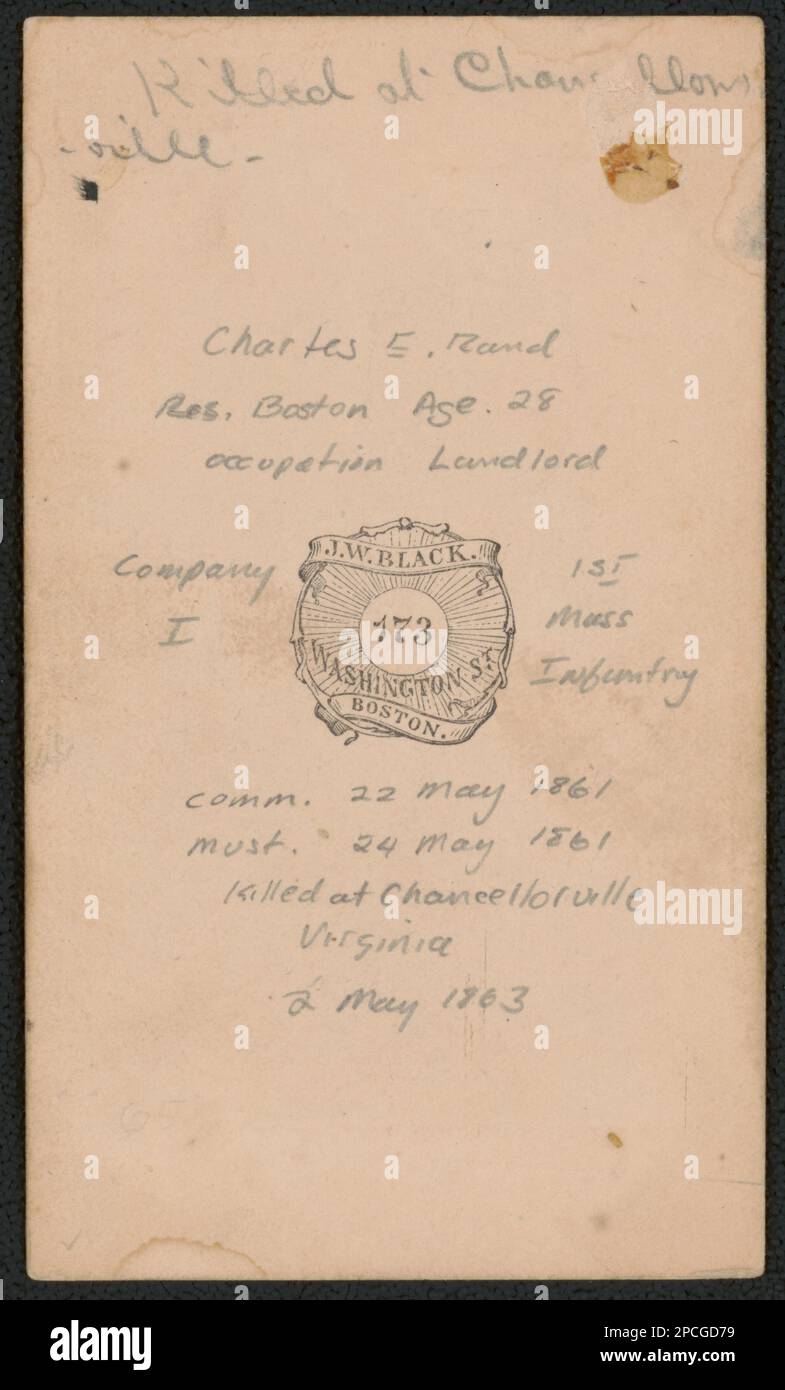 Killed at Chancellors
-ville-
Charles E. Rand
Res. Boston Age. 28
occupation Landlord
Company
I
J.W. BLACK.
173
WASHINGTON ST.
BOSTON.
1ST
Mass
Infantry
comm. 22 May 1861
must. 24 May 1861
Killed at Chancellorville
Virginia
2 May 1863
65
alamy
Image ID: 2PCGD79
www.alamy.com